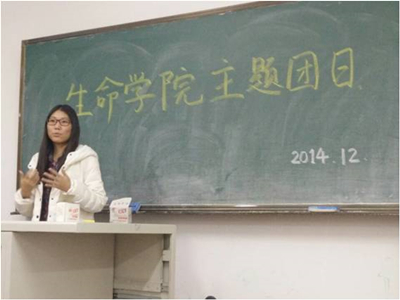 生命学院主题团日
2014.12.